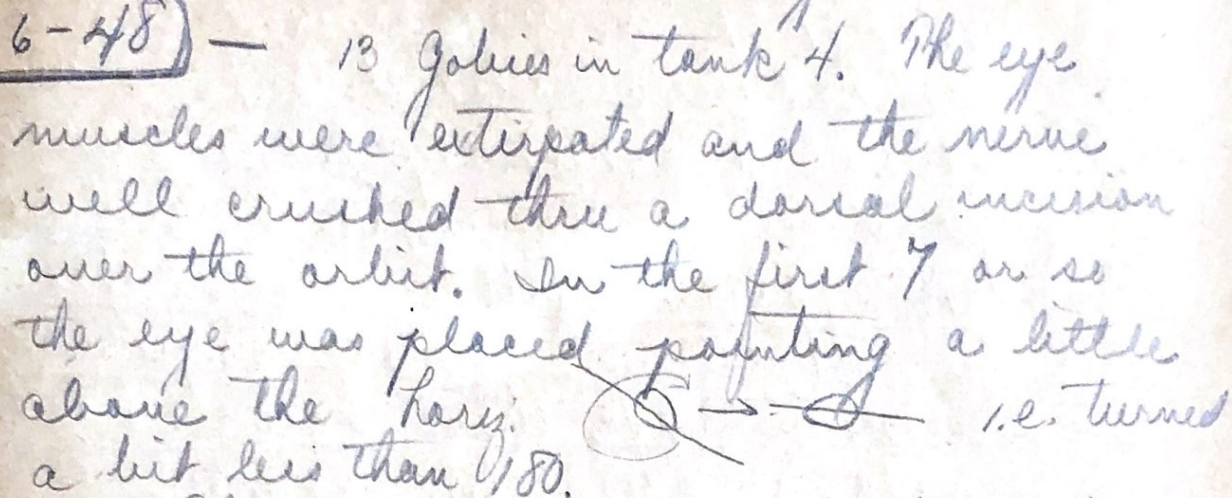 6-48) — 13 Gobies in tank 4. The eye
muscles were extirpated and the nerve
well crushed thru a dorsal incision
over the orbit. In the first 7 or so
the eye was placed pointing a little
above the horiz. → i.e. turned
a bit less than 180.